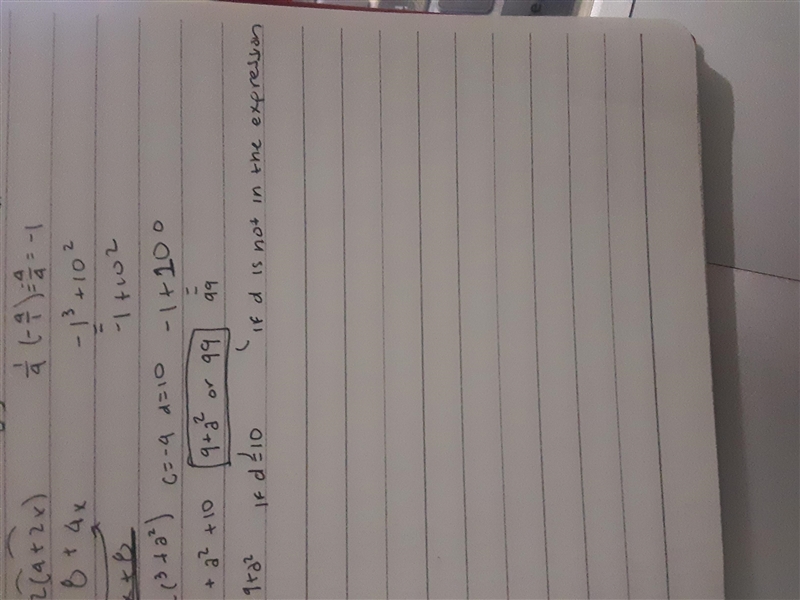 2(4+2x) 1/9 (-9/1) = -9/9 = -1
8 + 4x -1³+10²
+8 = -1+10²
c³+d²) c=-9 d=10 -1+100
+ d² +10 9+d² or 99 = 99
9+d² if d=10 (if d is not in the expression